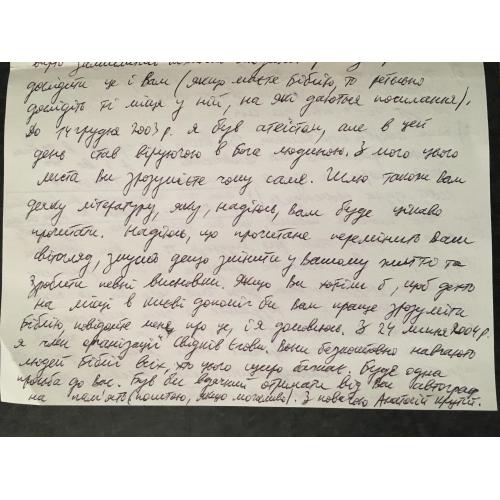 дослідити це і Вам (якщо маєте Біблію, то ретельно
дослідіть ті місця у ній, на які даються посилання).
До 14 грудня 2003 р. я був атеїстом, але в цей
день став віруючою в Бога людиною. З мого цього
листа Ви зрозумієте чому саме. Шлю також Вам
деяку літературу, яку, надіюсь, Вам буде цікаво
прочитати. Надіюсь, що прочитане перемінить Ваш
світогляд, змусить дещо змінити у Вашому житті та
зробити певні висновки. Якщо Ви хотіли б, щоб дехто
на місці в Києві допоміг би Вам краще зрозуміти
Біблію, повідомте мене про це, і я домовлюсь. З 24 липня 2004 р.
я член організації Свідків Єгови. Вони безкоштовно навчають
людей Біблії всіх, хто цього щиро бажає. Буде одна
просьба до Вас. Був би вдячний отримати від Вас автограф
на пам'ять (поштою, якщо можливо). З повагою Анатолій